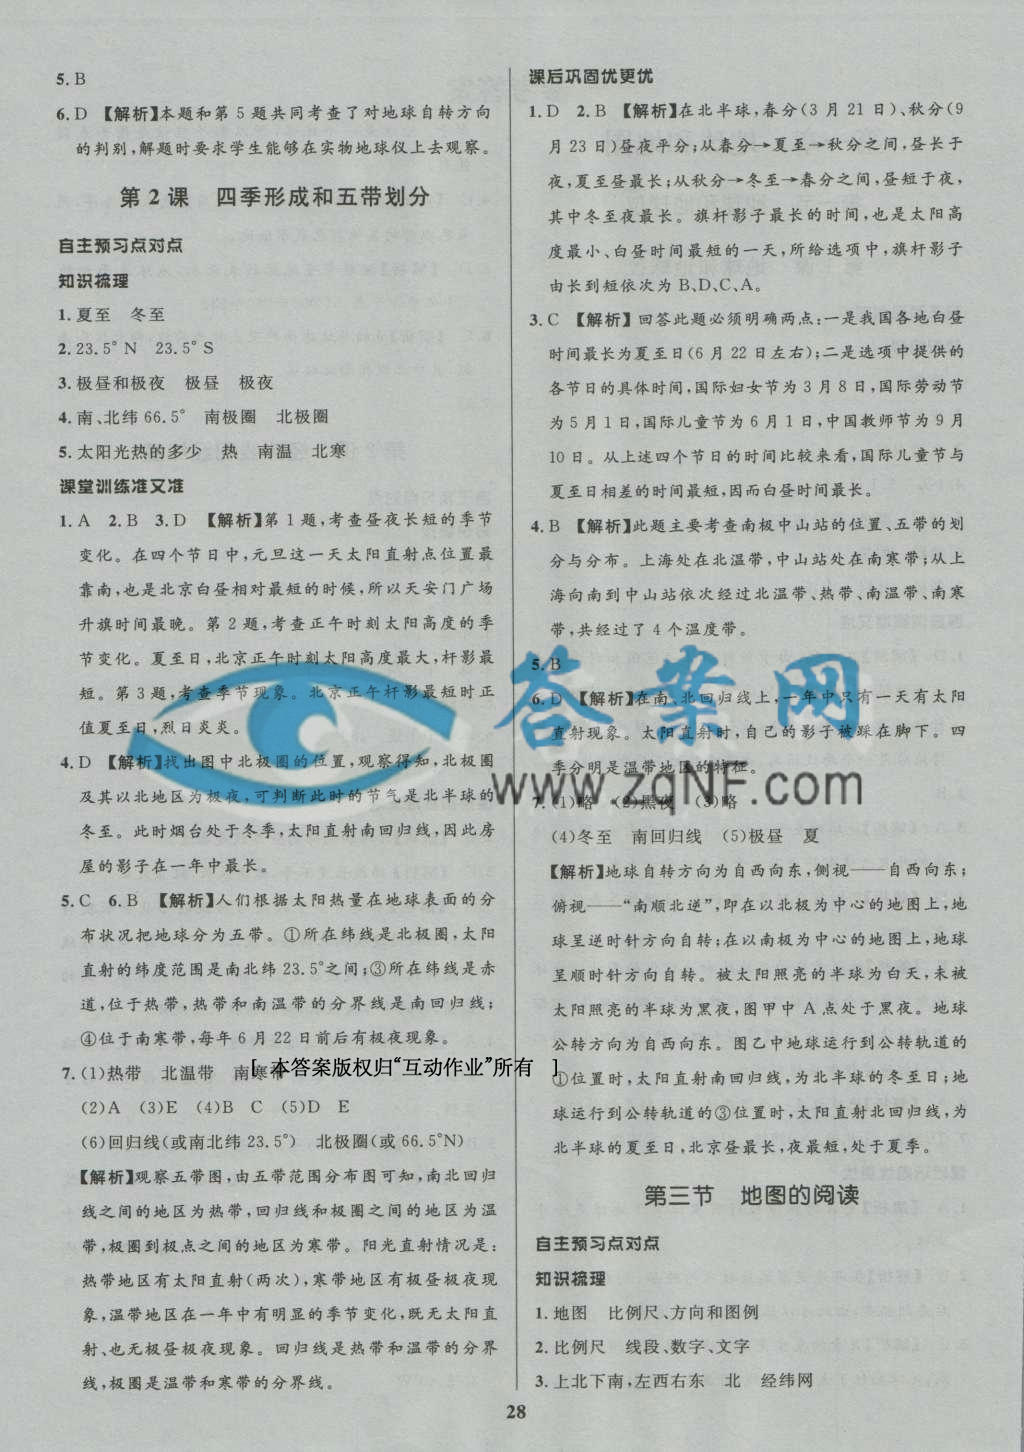 5. B
6. D 【解析】本题和第 5 题共同考查了对地球自转方向
的判别,解题时要求学生能够在实物地球仪上去观察。
第 2 课 四季形成和五带划分
自主预习点对点
知识梳理
1. 夏至 冬至
2. 23.5°N 23.5°S
3. 极昼和极夜 极昼 极夜
4. 南、北纬 66.5° 南极圈 北极圈
5. 太阳光热的多少 热 南温 北寒
课堂训练准又准
1. A 2. B 3. D 【解析】第 1 题,考查昼夜长短的季节
变化。在四个节日中,元旦这一天太阳直射点位置最
靠南,也是北京白昼相对最短的时候,所以天安门广场
升旗时间最晚。第 2 题,考查正午时刻太阳高度的季
节变化。夏至日,北京正午时刻太阳高度最大,杆影最
短。第 3 题,考查季节现象。北京正午杆影最短时正
值夏至日,烈日炎炎。
4. D 【解析】找出图中北极圈的位置,观察得知,北极圈
及其以北地区为极夜,可判断此时的节气是北半球的
冬至。此时烟台处于冬季,太阳直射南回归线,因此房
屋的影子在一年中最长。
5. C 6. B 【解析】人们根据太阳热量在地球表面的分
布状况把地球分为五带。①所在纬线是北极圈,太阳
直射的纬度范围是南北纬 23.5°之间;③所在纬线是赤
道,位于热带,热带和南温带的分界线是南回归线;
④位于南寒带,每年 6 月 22 日前后有极夜现象。
7. (1)热带 北温带 南寒带
(2)A (3)E (4)B C (5)D E
(6)回归线(或南北纬 23.5°) 北极圈(或 66.5°N)
【解析】观察五带图,由五带范围分布图可知,南北回归
线之间的地区为热带,回归线和极圈之间的地区为温
带,极圈到极点之间的地区为寒带。阳光直射情况是:
热带地区有太阳直射(两次),寒带地区有极昼极夜现
象,温带地区在一年中有明显的季节变化,既无太阳直
射、也无极昼极夜现象。回归线是热带和温带的分界
线,极圈是温带和寒带的分界线。
课后巩固优更优
1. D 2. B 【解析】在北半球,春分(3 月 21 日)、秋分(9
月 23 日)昼夜平分;从春分→夏至→秋分之间,昼长于
夜,夏至昼最长;从秋分→冬至→春分之间,昼短于夜,
其中冬至夜最长。旗杆影子最长的时间,也是太阳高
度最小、白昼时间最短的一天,所给选项中,旗杆影子
由长到短依次为 B、D、C、A。
3. C 【解析】回答此题必须明确两点:一是我国各地白昼
时间最长为夏至日(6 月 22 日左右);二是选项中提供的
各节日的具体时间,国际妇女节为 3 月 8 日,国际劳动节
为 5 月 1 日,国际儿童节为 6 月 1 日,中国教师节为 9 月
10 日。从上述四个节日的时间比较来看,国际儿童节与
夏至日相差的时间最短,因而白昼时间最长。
4. B 【解析】此题主要考查南极中山站的位置、五带的划
分与分布。上海处在北温带,中山站处在南寒带;从上
海向南到中山站依次经过北温带、热带、南温带、南寒
带,共经过了 4 个温度带。
5. B
6. D 【解析】在南、北回归线上,一年中只有一天有太阳
直射现象。太阳直射时,自己的影子被踩在脚下。四
季分明是温带地区的特征。
7. (1)略 (2)黑夜 (3)略
(4)冬至 南回归线 (5)极昼 夏
【解析】地球自转方向为自西向东,侧视——自西向东;
俯视——“南顺北逆”,即在以北极为中心的地图上,地
球呈逆时针方向自转;在以南极为中心的地图上,地球
呈顺时针方向自转。被太阳照亮的半球为白天,未被
太阳照亮的半球为黑夜,图甲中 A 点处于黑夜。地球
公转方向为自西向东。图乙中地球运行到公转轨道的
①位置时,太阳直射南回归线,为北半球的冬至日;地
球运行到公转轨道的③位置时,太阳直射北回归线,为
北半球的夏至日,北京昼最长,夜最短,处于夏季。
第三节 地图的阅读
自主预习点对点
知识梳理
1. 地图 比例尺、方向和图例
2. 比例尺 线段、数字、文字
3. 上北下南,左西右东 北 经纬网
答案网
www.zqnf.com
[ 本答案版权归“互动作业”所有 ]
28